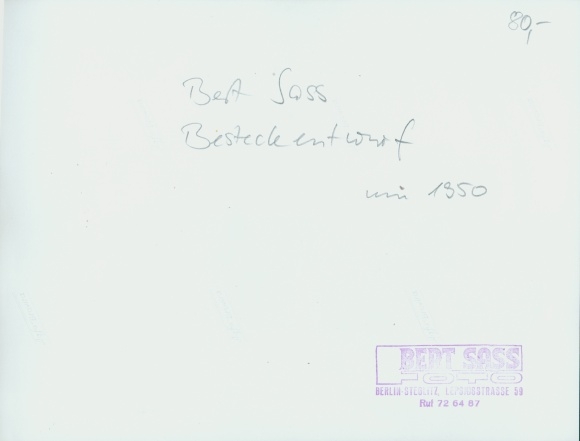 80,-
Bert Sass
Besteckentwurf
um 1950
BERT SASS
FOTO
BERLIN-STEGLITZ, LEPSIUSSTRASSE 59
Ruf 72 64 87